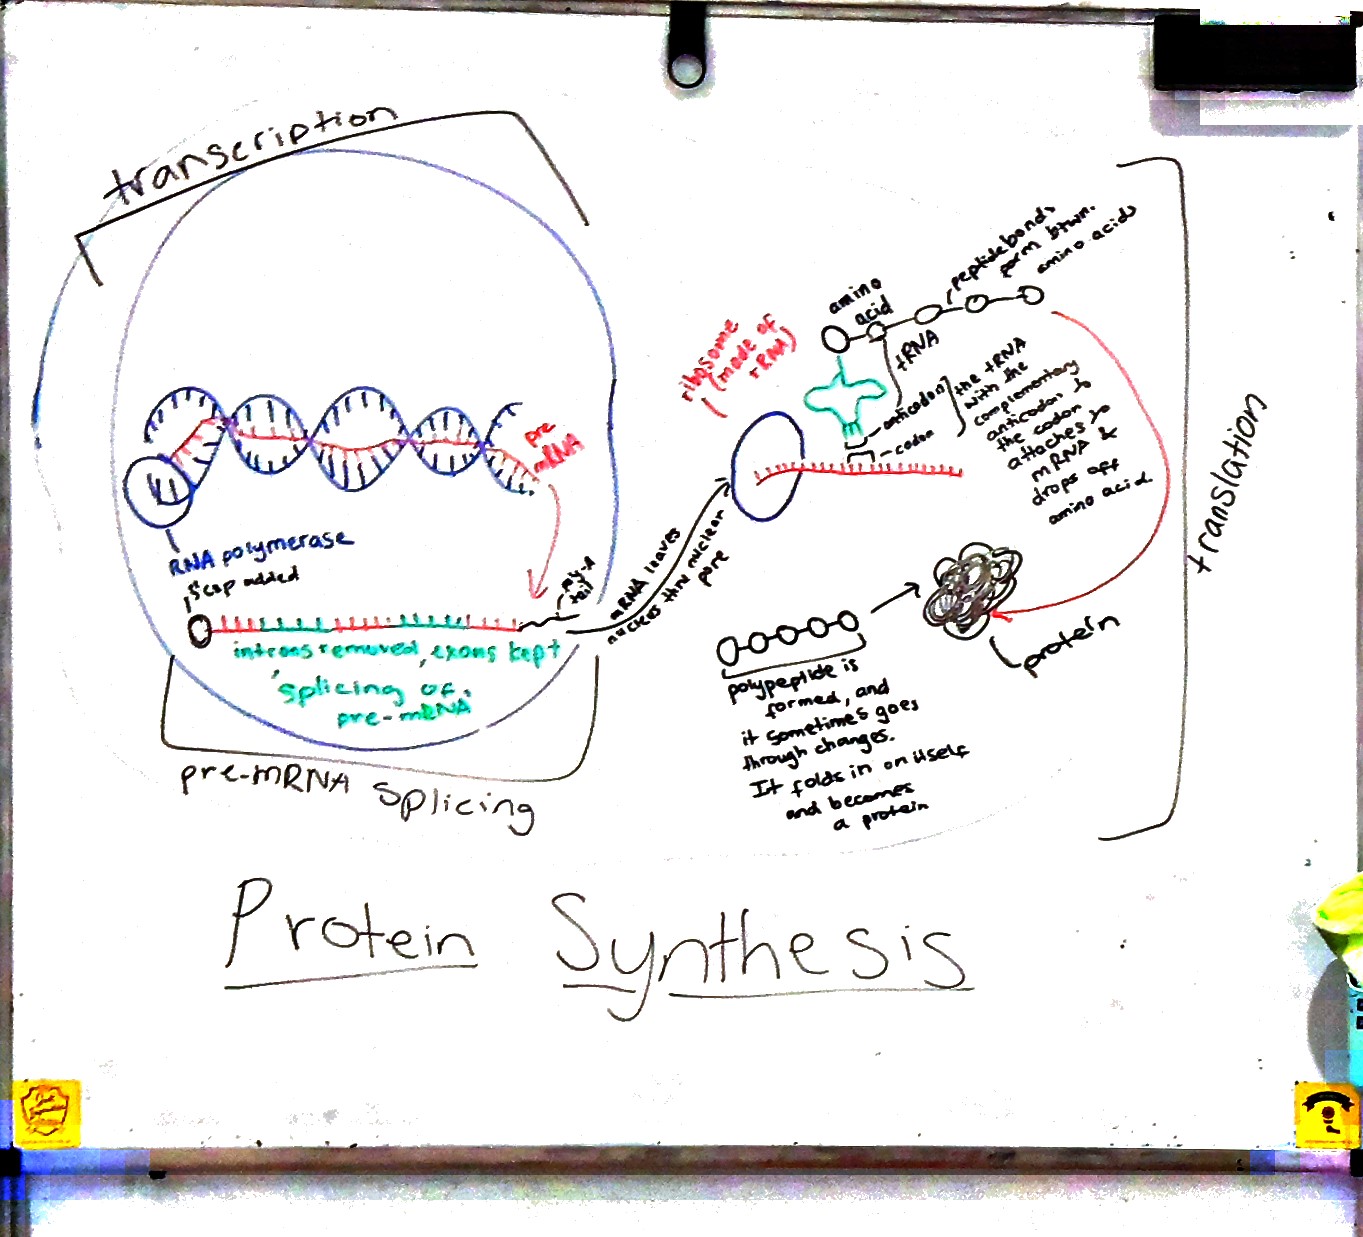 transcription
pre
mRNA
RNA polymerase
5' cap added
tail
introns removed, exons kept
splicing of
pre-mRNA
pre-mRNA splicing
mRNA leaves
nucleus thru nuclear
pore
ribosome
(made of
rRNA)
amino
acid
tRNA
peptide bonds
form btwn.
amino acids
anticodon
codon
the tRNA
with the
complementary
anticodon to
the codon
attaches to
mRNA &
drops off
amino acid.
polypeptide is
formed, and
it sometimes goes
through changes.
It folds in on itself
and becomes
a protein
protein
translation
Protein Synthesis